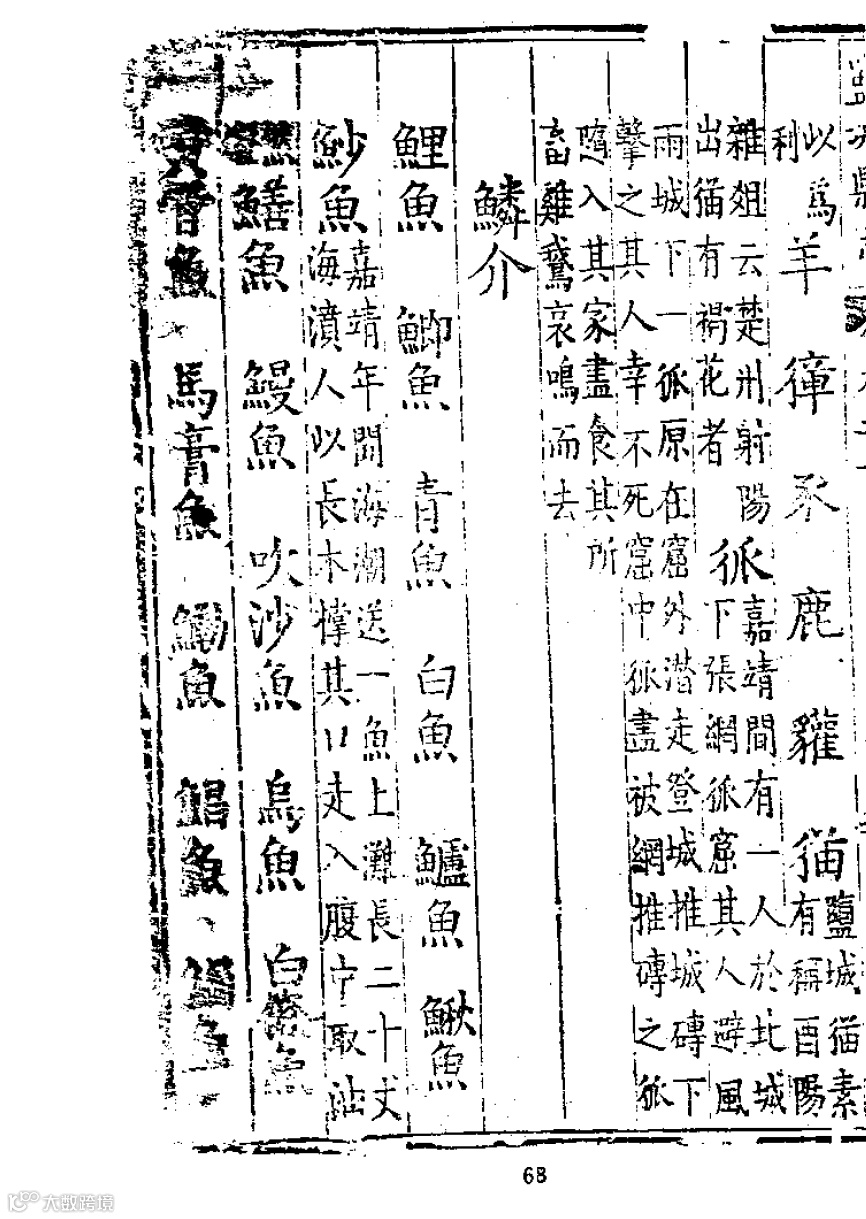 以爲
利
羊 獐 豕 鹿 貛 猫
鹽城猫素
有稱酉陽
雜俎云楚州射陽
出猫有褐花者
狐
嘉靖間有一人於北城
下張網狐窟其人避風
雨城下一狐原在窟外潜走登城推城磚下
擊之其人幸不死窟中狐盡被網推磚之狐
隨入其家盡食其所
畜雞鵞哀鳴而去
鱗介
鯉魚 鯽魚 青魚 白魚 鱸魚 鰍魚
魦魚
嘉靖年間海潮送一魚上灘長二十丈
海濆人以長木撑其口走入腹中取油
鱔魚 鰻魚 吹沙魚 烏魚 白魚
魚 馬膏魚 鰳魚 鯧魚
68
大数跨境